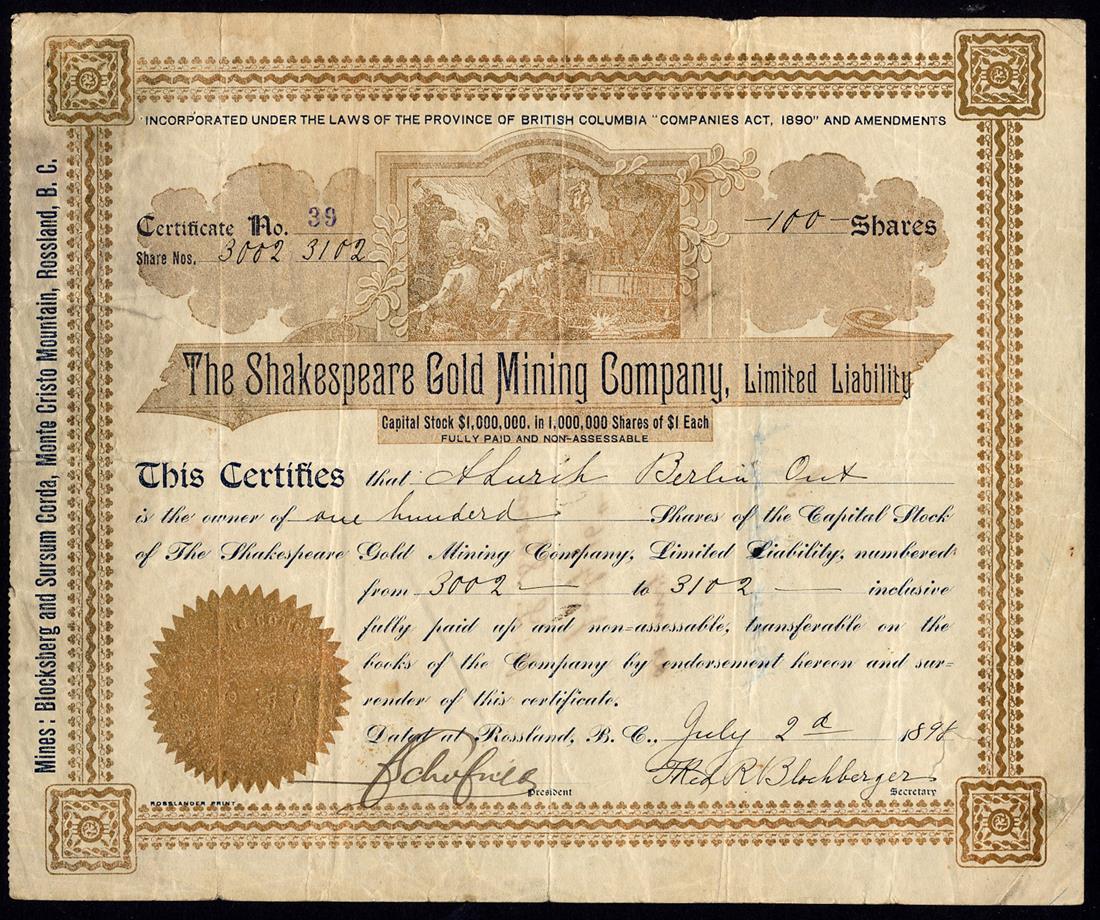 INCORPORATED UNDER THE LAWS OF THE PROVINCE OF BRITISH COLUMBIA "COMPANIES ACT, 1890" AND AMENDMENTS
Certificate No. 39
Share Nos. 3002 3102
100 Shares
The Shakespeare Gold Mining Company, Limited Liability
Capital Stock $1,000,000. in 1,000,000 Shares of $1 Each
FULLY PAID AND NON-ASSESSABLE
This Certifies that Berlin Ont
is the owner of one hunderd Shares of the Capital Stock
of The Shakespeare Gold Mining Company, Limited Liability, numbered
from 3002 to 3102 inclusive
fully paid up and non=assessable, transferable on the
books of the Company by endorsement hereon and sur=
render of this certificate.
Dated at Rossland, B. C., July 2d 1898
President
Fred R Blochberger
Secretary
ROSSLANDER PRINT
Mines: Blocksberg and Sursum Corda, Monte Cristo Mountain, Rossland, B. C.